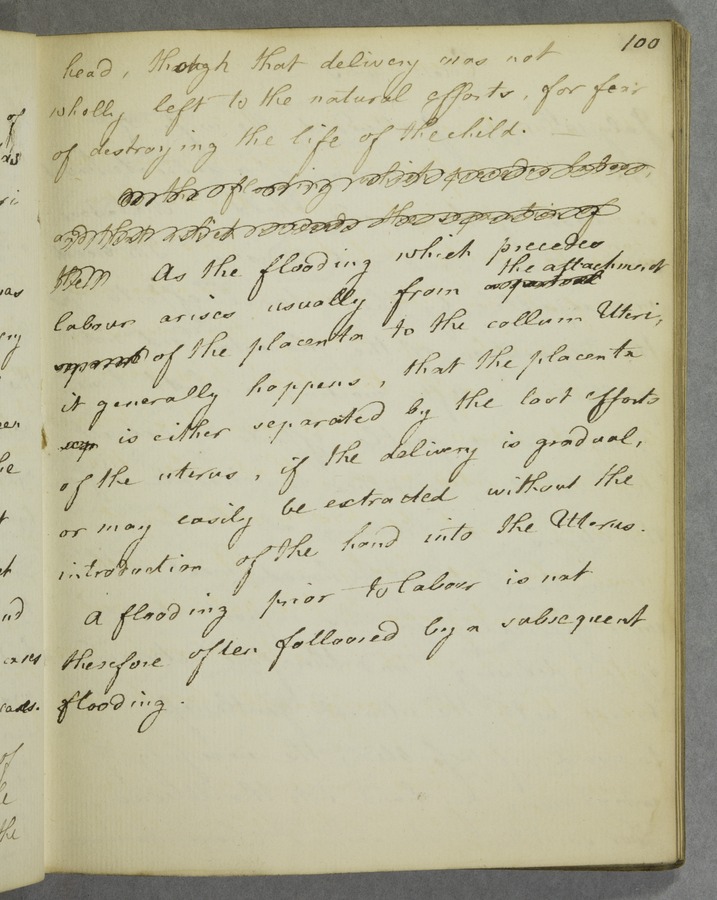 100
head, though that delivery was not
wholly left to the natural efforts, for fear
of destroying the life of the child. —
As the flooding which precedes
labour arises usually from the attachment
of the placenta to the collum Uteri,
it generally happens, that the placenta
is either separated by the last efforts
of the uterus, if the delivery is gradual,
or may easily be extracted without the
introduction of the hand into the Uterus.
A flooding prior to labour is not
therefore often followed by a subsequent
flooding.